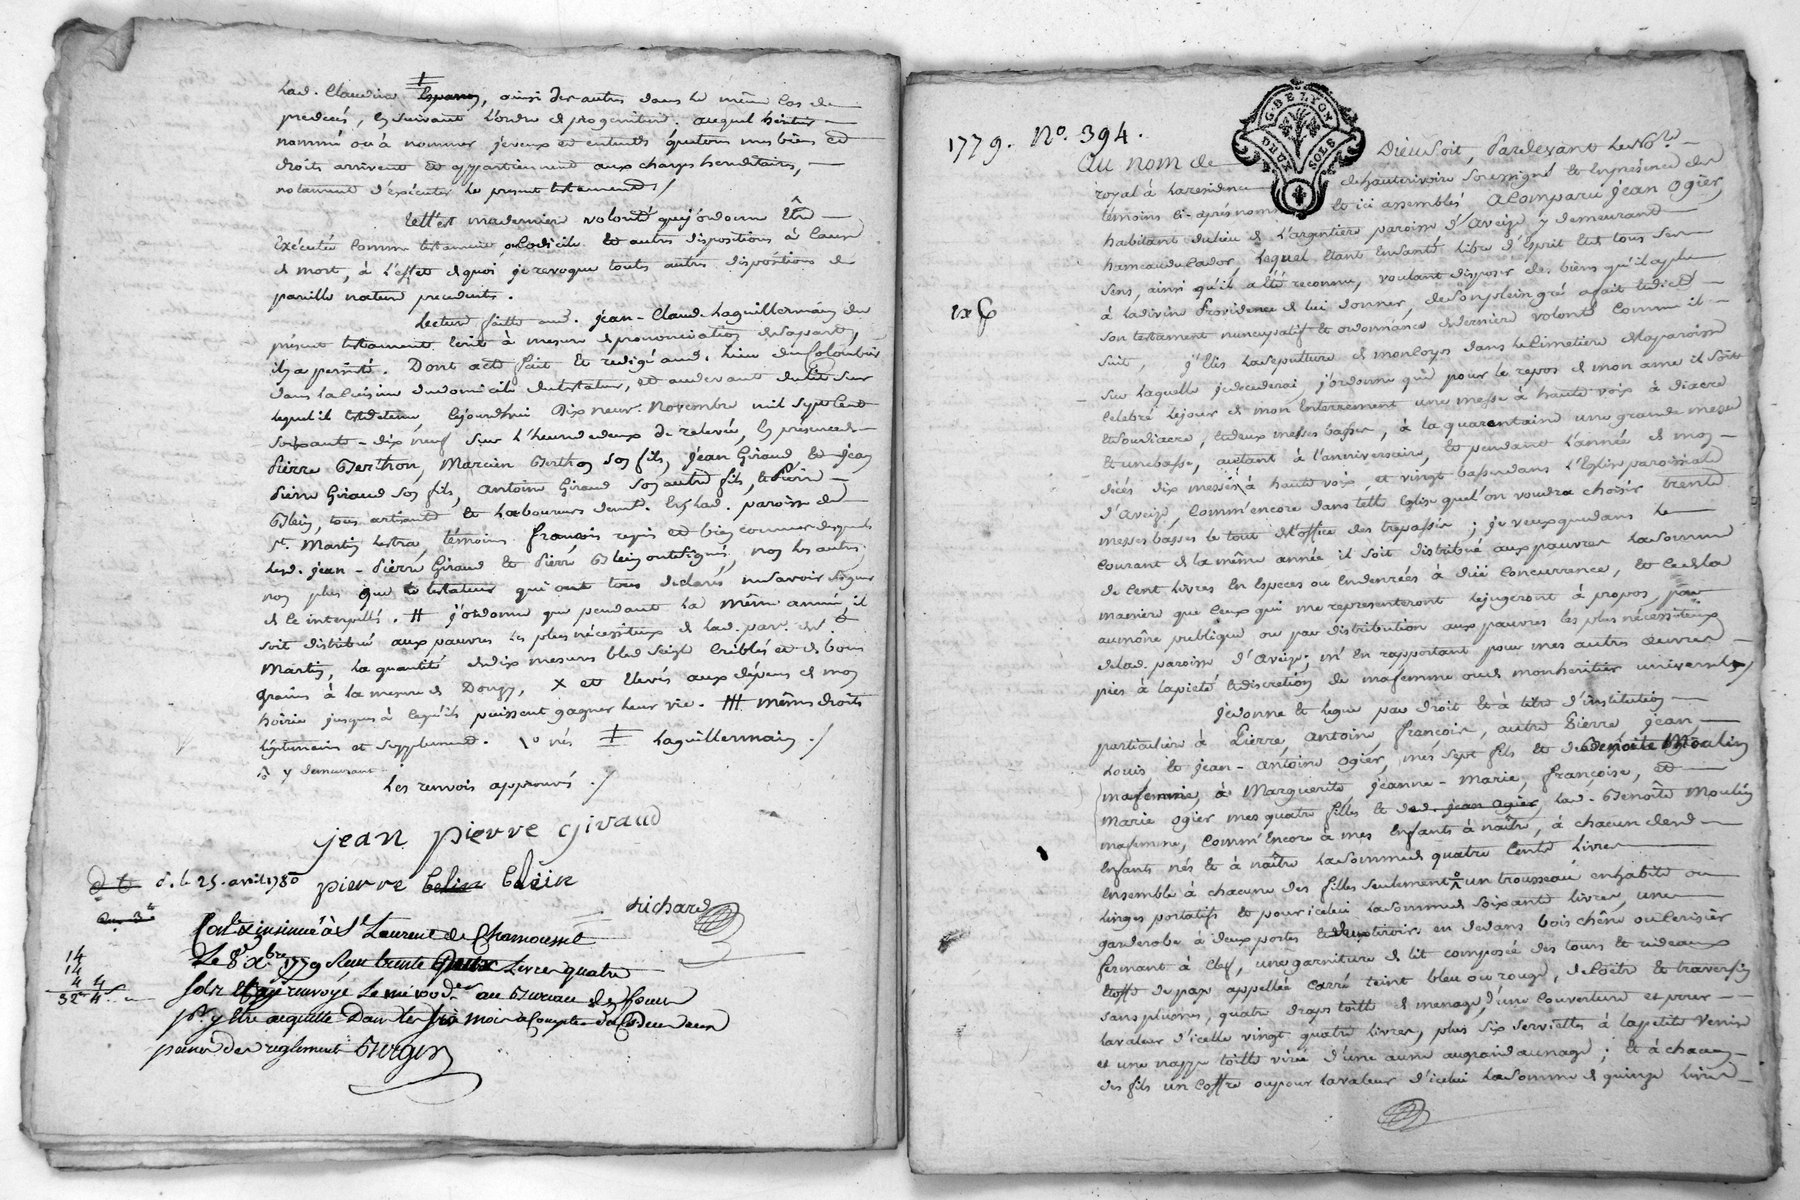 Lad. Claudine Espanos, ainsi des autres dans le même cas de
predeces, en suivant l'ordre de progeniture. auquel heritier
nommé ou à nommer je veux et entends que tous mes biens et
droits arrivent et appartiennent aux charges hereditaires,
notament d'exécuter le present testament /
Cett'est ma derniere volonté que j'ordonne Être
exécutée comme testament codicile et autres dispositions à cause
de mort, à l'effet de quoi je revoque toutes autres dispositions de
pareille nature precedentes.
Lecture faitte aud. jean-Claude Laguillermain du
present testament Ecrit à mesure de prononciation de sa part,
il y a persisté. Dont acte fait et redigé aud. lieu du Colombier
dans la cuisine du domicile du testateur, et au devant du lit sur
lequel il est detenu, cejourdhui Dix neuf. Novembre mil sept cent
soixante-dix neuf sur l'heure de deux de relevée, en presence de
Pierre Berthon, Marcien Berthon son fils, jean Giraud et jean
Pierre Giraud son fils, antoine Giraud son autre fils, et Pierre
Blein, tous artisans et Laboureurs demt. En lad. paroisse de
St. Martin Lestra, témoins francois requis et bien connus desquels
Lesd. jean-Pierre Giraud et Pierre Blein ont signé, non les autres
non plus que le testateur qui ont tous declaré ne savoir signer
de ce interpellés. # j'ordonne que pendant la même année, il
soit distribué aux pauvres les plus nécessiteux de lad. par. de St
Martin, la quantité de dix mesures bled seigle Criblés et de bons
grains à la mesure de Donzy, X et Elevés aux dépens de mon
hoirie jusques à ce qu'ils puissent gagner leur vie. ## mêmes droits
légitimaires et supplement. 1° nés ‡ Laguillermain ./
& y demeurant
Les renvois approuvés ./
jean pierre Giraud
pierre belin blein
d. le 25. avril 1780
richard
14
14
4 4
32 4
Con.lé & insinué à St Laurent de Chamousset
Le 8e xbre 1779 Reçu trente deux Livres quatre
sols et ay renvoyé le me pod.re au Bureau de
pr. y Etre acquitté Dans les six mois à Compter du Deces sous
peine des reglement Burgin
1779. No. 394.
G. DE LYON
DEUX SOLS
Au nom de Dieu Soit, Pardevant le No.re
royal à la residence de hauterivoire soussigné et en presence des
témoins ci-après nommés et ici assemblés A Comparu jean Ogier
habitant du lieu de L'argentiere paroisse d'Aveize y demeurant
hameau du Cador, Lequel Etant En Santé libre d'Esprit et de tous ses
sens, ainsi qu'il a été reconnu, voulant disposer des biens qu'il a plu
à la divine Providence de lui donner, de son plein gré a fait et dicté
Ex C
son testament nuncupatif et ordonnance de derniere volonté Comme il
suit, j'Elis la sepulture de mon Corps dans le cimetiere de la paroisse
sur laquelle je decederai, j'ordonne que pour le repos de mon ame il soit
celebré le jour de mon Enterrement une messe à haute voix à diacre
et soudiacre, et deux messes basses, à la quarantaine une grande messe
et une basse, autant à l'anniversaire, et pendant l'année de mon
décés dix messes à haute voix, et vingt basses dans l'Eglise paroissiale
d'Aveize, comm'encore dans telle Eglise que l'on voudra choisir trente
messes basses le tout de l'office des trepassés ; je veux que dans le
courant de la même année il soit distribué aux pauvres la somme
de Cent livres En Especes ou En denrées à düe concurrance, et ce de la
maniere que Ceux qui me representeront le jugeront à propos, par
aumône publique ou par distribution aux pauvres les plus nécessiteux
de lad. paroisse d'Aveize ; m'En rapportant pour mes autres œuvres
pies à la pieté et discretion de ma femme ou de mon heritier universels /
je donne et legue par droit et à titre d'institution
particuliere à Pierre, Antoine, François, autre Pierre, jean
Louis, et jean-Antoine Ogier, més sept fils et de Benoite Moulin
ma femme, à Marguerite jeanne-Marie, françoise, et
Marie Ogier mes quatre filles et ded. jean Ogier, lad. Benoîte Moulin
ma femme, comm'Encore à mes Enfants à naître, à chacun desd.
Enfants nés et à naître la somme de quatre Cents Livres
Ensemble à chacune des filles seulement un trousseau en habits ou
Linges portatifs et pour icelui la somme de soixante livres, une
garderobe à deux portes et deux tiroirs en dedans bois chêne ou Cerisier
fermant à clef, une garniture de lit composée des tours et rideaux
Etoffe de pax appellée carré teint bleu ou rouge, de Coëtre et traversin
sans plumes, quatre draps toille de menage, d'une couverture et pour
la valeur d'icelle vingt quatre livres, plus six serviettes à la petite Venise
et une nappe toille virée d'une aune au grand aunage ; et à chacun
des fils un Coffre ou pour la valeur d'icelui La Somme de quinze livres